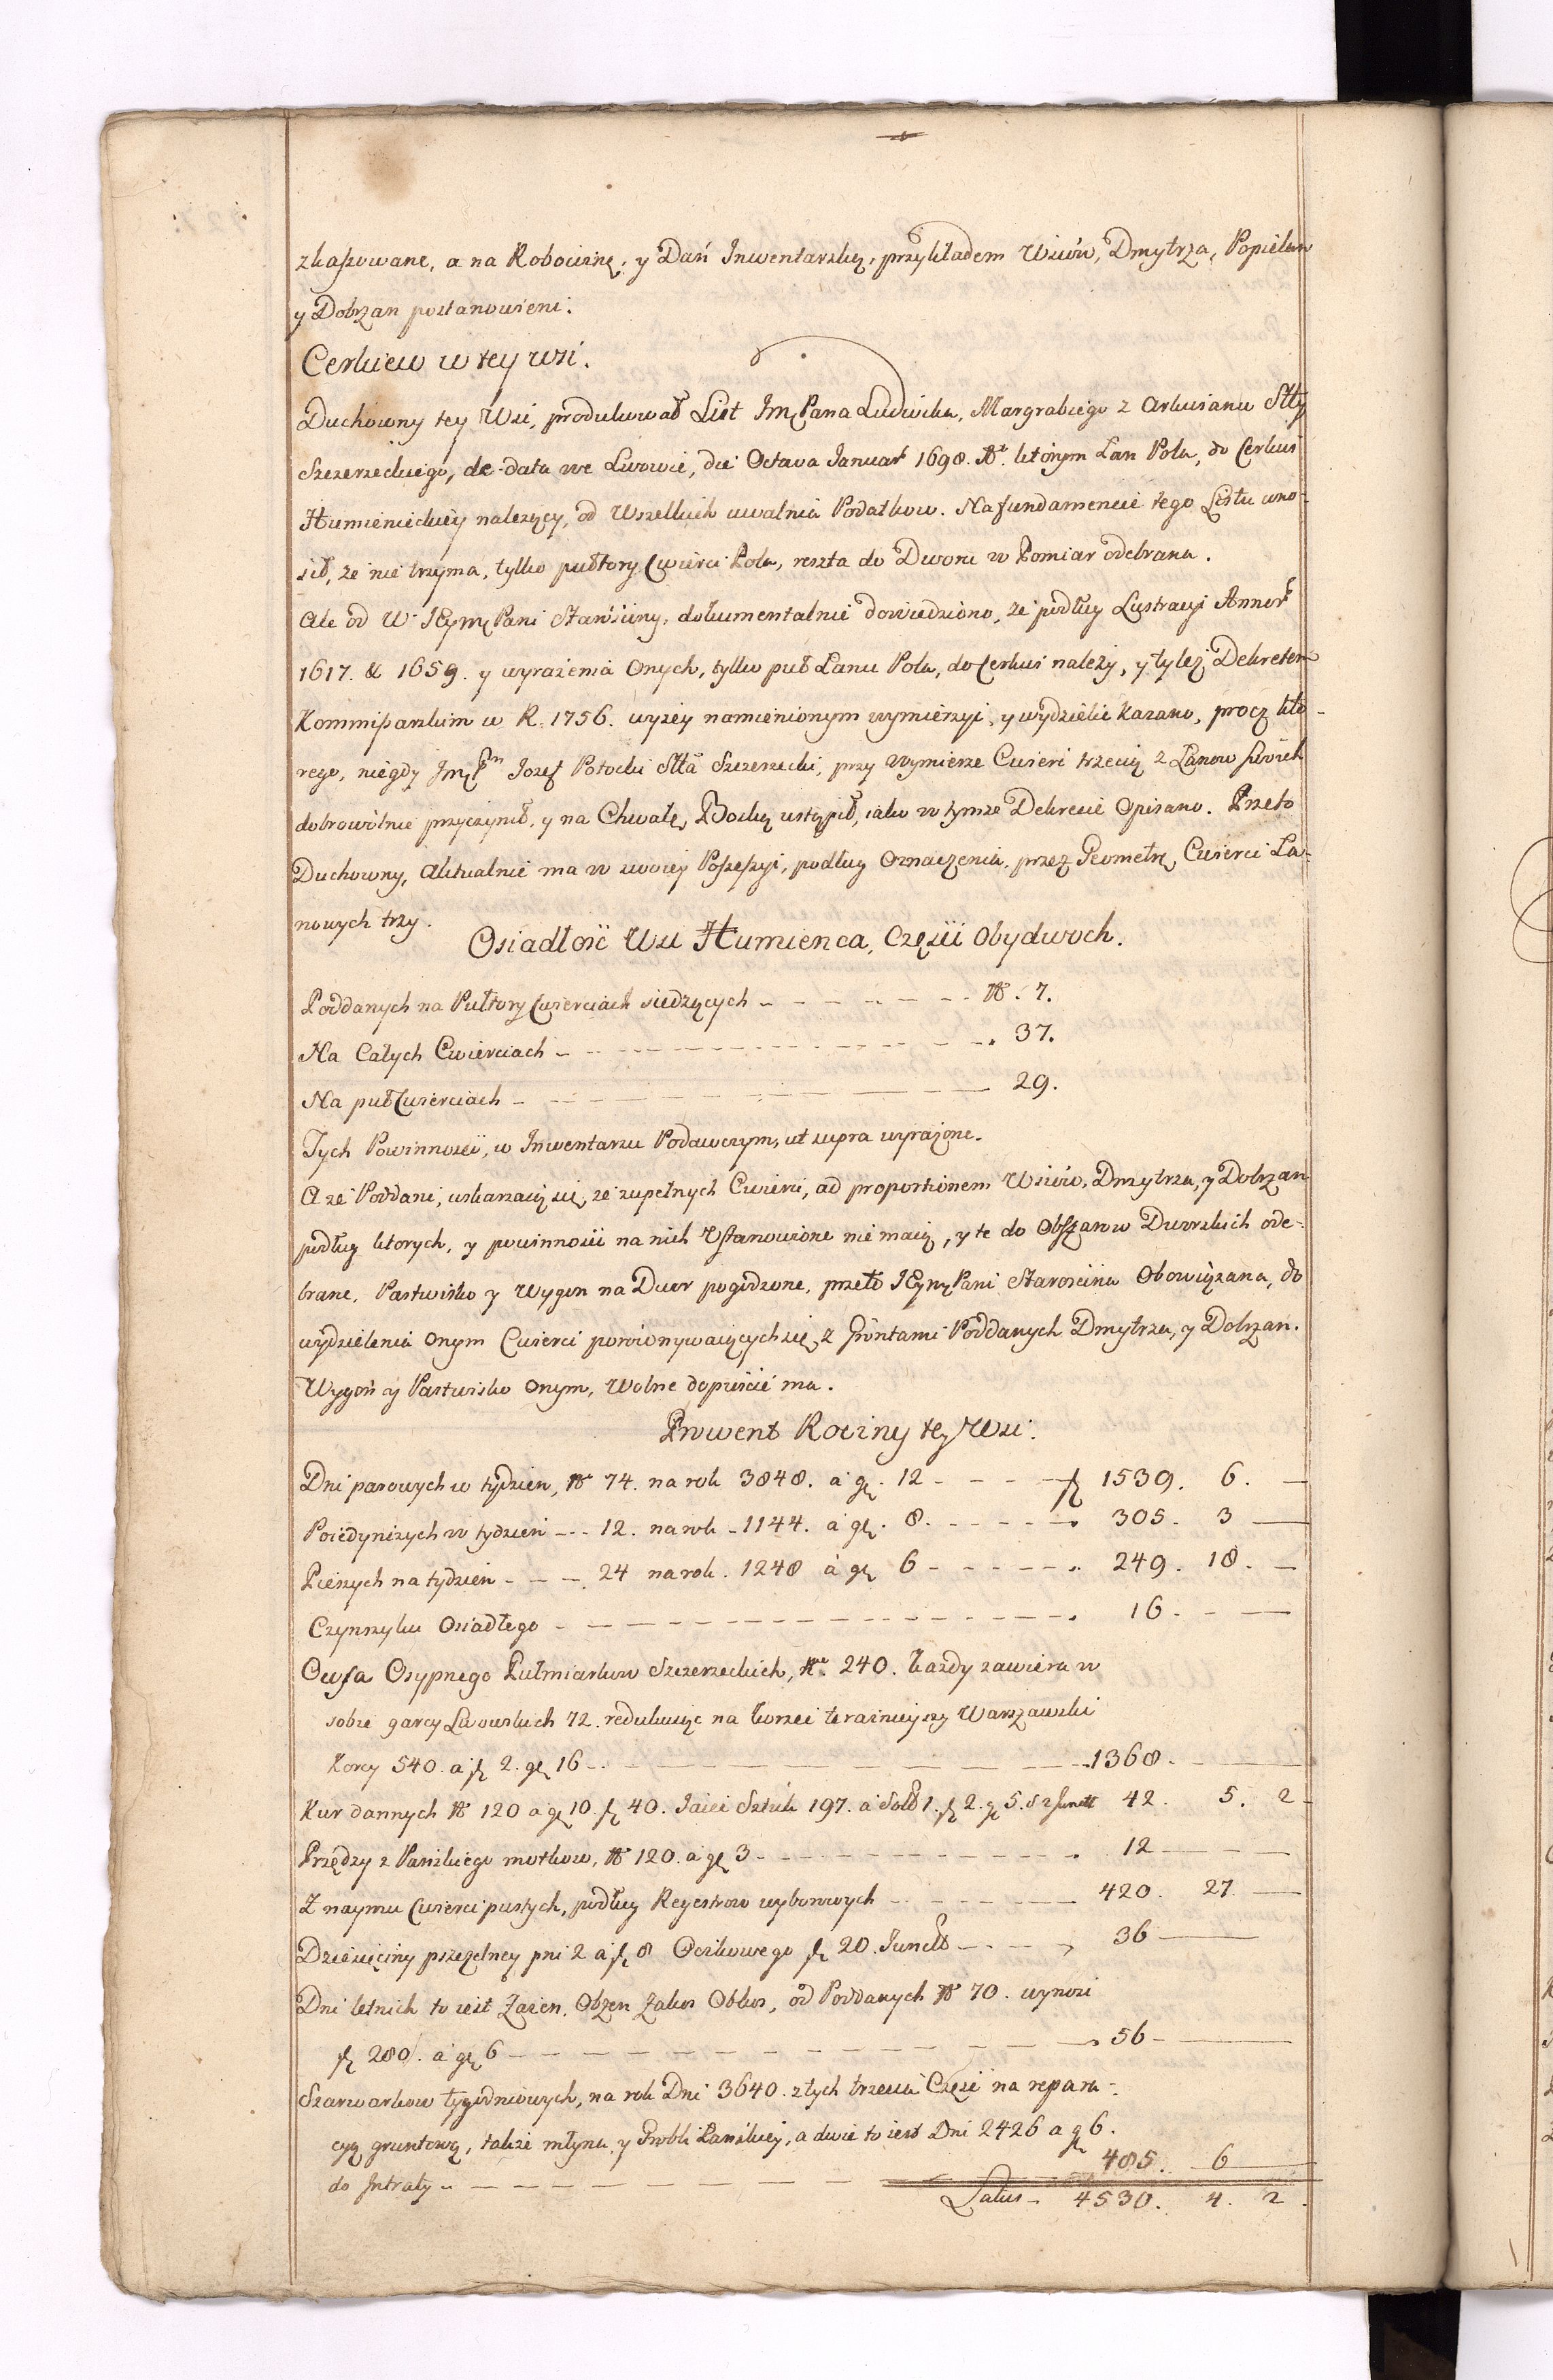 zkassowane, a na Robociznę, y Dań Inwentarską, przykładem Wsiów, Dmytrza, Popielan
y Dobrzan postanowieni.
Cerkiew w tey wsi.
Duchowny tey Wsi, produkował List Jmć Pana Ludwika, Margrabiego z Arkusianu Stty
Szczerzeckiego, de data we Lwowie, die Octava Januar 1698. No. ktorym Łan Pola, do Cerkwi
Humienieckiey należący, od Wszelkich uwalnia Podatkow. Na fundamencie tego Listu wno-
sił, że nie trzyma, tylko pułtory Cwierci Pola, reszta do Dworu w Pomiar odebrana.
Ale od W JEymć Pani Starościny, dokumentalnie dowiedziono, że podług Lustracyi Annor
1617. & 1659. y wyrażenia Onych, tylko puł Łanu Pola, do Cerkwi należy, y tyleż Dekretem
Kommissarskim w R. 1756. wyżey namienionym wymierzyć, y wydzielić kazano, procz kto-
rego, niegdy Jmć Pn Jozef Potocki Stta Szczerzecki, przy wymierze Cwierć trzecią z Łanow swoich
dobrowolnie przyczynił, y na Chwałę Boską ustąpił, iako w tymże Dekrecie Opisano. Przeto
Duchowny, Aktualnie ma w swoiey Possessyi, podług Oznaczenia, przez Geometrę, Cwierci Ła-
nowych trzy.
Osiadłość Wsi Humienca, Części Obydwoch.
Poddanych na Pułtory Cwierciach siedzących - - - - - No. 7.
Na Całych Cwierciach - - - - - 37.
Na puł Cwierciach - - - - - 29.
Tych Powinności, w Inwentarzu Podawczym, ut supra wyrażone.
A że Poddani, uskarzaią się, że zupełnych Cwierci, ad proportionem Wsiów, Dmytrza, y Dobrzan
podług ktorych, y powinności na nich Ustanowione nie maią, y te do Obszarow Dworskich ode-
brane, Pastwisko y Wygon na Dwor pogrodzone, przeto JEymć Pani Starościna Obowiązana, do
wydzielenia Onym Cwierci porównywaiących się, z Gruntami Poddanych Dmytrza, y Dobrzan.
Wygoń y Pastwisko Onym, Wolne dopuścić ma.
Prowent Roczny tey Wsi.
Dni parowych w tydzień, No 74. na rok 3848. a gr. 12 - - - - fl 1539. 6. —
Poiedynczych w tydzień - - - 12. na rok - 1144. a gr. 8. - - - - - 305. 3 —
Pieszych na tydzień - - - 24 na rok. 1248 a gr 6 - - - - - 249. 18. —
Czynszyku Osiadłego - - - - - 16 - - —
Owsa Osypnego Pułmiarkow Szczerzeckich, No. 240. każdy zawiera w
sobie garcy Lwowskich 72. redukuiąc na korzec teraźnieyszy Warszawski
Korcy 540. a fl 2. gr 16 - - - - - 1368. —
Kur dannych No 120 a gr 10. fl 40. Jaiec Sztuk 197. a Sold 1. fl 2. gr 5. S 2 Junctt 42. 5. 2 -
Przędzy z Pańskiego motkow, No 120. a gr 3 - - - - - 12 — —
Z naymu Cwierci pustych, podług Reyestrow wyborowych - - - - - 420. 27. —
Dziesięciny pszczelney pni 2 a fl 8 Oczkowego fl 20. Junctt - - - - 36 —
Dni letnich to iest Zażen, Obżen Zakos Obkos, od Poddanych No 70. wynosi
fl 280. a gr 6 - - - - - 56 - —
Szarwarkow tygodniowych, na rok Dni 3640. z tych trzecia Część na repara-
cyą gruntową, także młyna, y Grobli Pańskiey, a dwie to iest Dni 2426 a gr 6.
do Intraty - - - - - 485. 6
Latus - 4530. 4. 2.